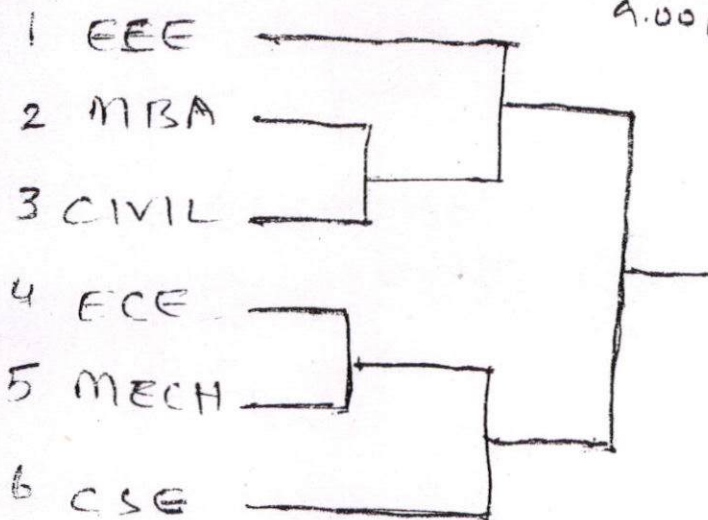 9.00
1 EEE
2 MBA
3 CIVIL
4 ECE
5 MECH
6 CSE